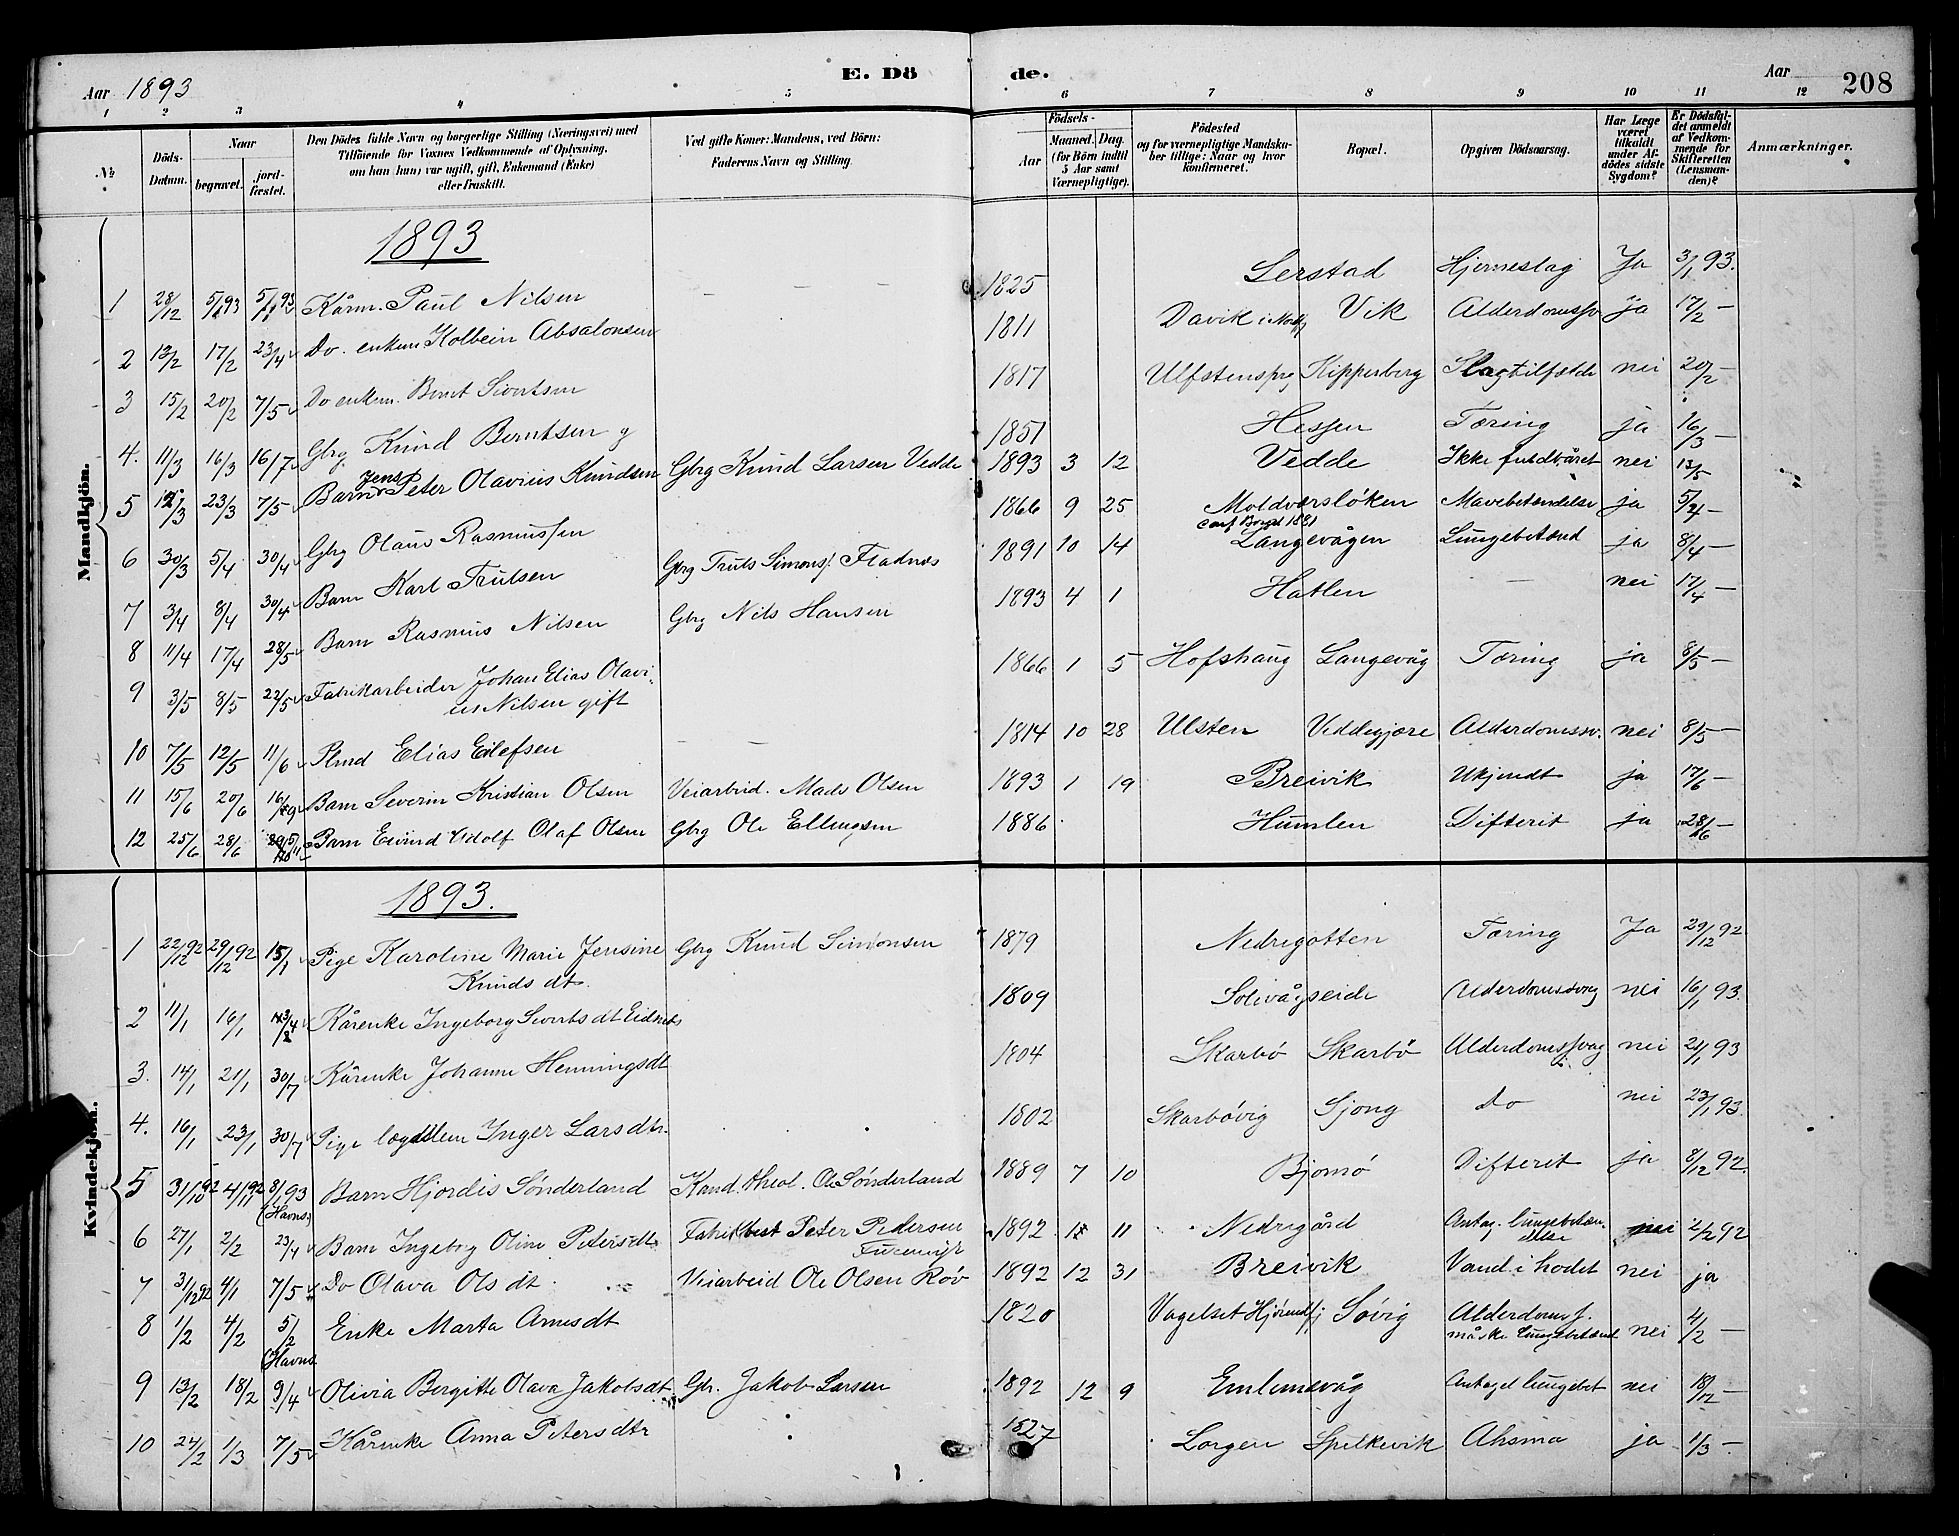 Aar 1893
E. Dö
de.
Aar
208
1 2 3 4 5 6 7 8 9 10 11 12
№
Döds-Datum.
Naar
begravet.
jord-fæstet.
Den Dödes fulde Navn og borgerlige Stilling (Næringsvei) med
Tilföiende for Voxnes Vedkommende af Oplysning,
om han (hun) var ugift, gift, Enkemand (Enke)
eller fraskilt.
Ved gifte Koner: Mandens, ved Börn:
Faderens Navn og Stilling.
Födsels-
Aar
Maaned. Dag.
(for Börn indtil
5 Aar samt
Værnepligtige).
Födested
og for værnepligtige Mandska-
ber tillige: Naar og hvor
konfirmeret.
Bopæl.
Opgiven Dödsaarsag.
Har Læge
været
tilkaldt
under Af-
dödes sidste
Sygdom?
Er Dödsfal-
det anmeldt
af Vedkom-
mende for
Skifteretten
(Lensman-
den)?
Anmærkninger.
Mandkjön.
1893
1 28/12 5/1 93 5/1 93 Kårm. Paul Nilsen — — 1825 Serstad Hjerneslag Ja 3/1 93.
2 13/2 17/2 23/4 Do. enkem Kolbein Absalonsen 1811 Davik i Nordfj Vik Alderdomssv Ja 17/2 —
3 15/2 20/2 7/5 Do enkem. Bernt Sivertsen 1817 Ulfstenspre Kipperberg Slagtilfælde nei 20/2 —
4. 11/3 16/3 16/7 Gbrg. Knud Berntsen g 1851 Hessen Tæring ja 16/3 —
5 12/3 23/3 7/5 Barn Jens Peter Olavius Knudsen Gbrg Knud Larsen Vedde 1893 3 12 Vedde Ikke fuldbåret nei 13/5
6 30/3 5/4 30/4 Gbrg Olaus Rasmussen 1866 9 25 Moldværsløken Mavebetændelse ja 5/4 —
conf Borgd 1881
7 3/4 8/4 30/4 Barn Karl Trulsen Gbrg Truls Simons. Fladnes 1891 10 14 Langevågen Lungebetænd ja 8/4 —
8 11/4 17/4 28/5 Barn Rasmus Nilsen Gbrg Nils Hansen 1893 4 1 Hatlen — nei 17/4 —
9 3/5 8/5 22/5 Fabrikarbeider Johan Elias Olavi- 1866 1 5 Hofshaug Langevåg Tæring ja 8/5 —
us Nilsen gift
10 7/5 12/5 11/6 Plmd Elias Eilefsen — 1814 10 28 Ulsten Veddegjære Alderdomssv. nei 8/5 —
11 15/6 20/6 16/ Barn Severin Kristian Olsen Veiarbeid. Mads Olsen 1893 1 19 Breivik Ukjendt ja 17/6 —
12 25/6 28/6 Barn Eivind Adolf Olaf Olsen Gbrg Ole Ellingsen 1886 Humlen Difterit ja 28/6 —
Kvindekjön.
1893.
1 22/12 92 29/12 92 15/1 Pige Karoline Marie Jensine Gbrg Knud Simonsen 1879 Nedregotten Tæring Ja 29/12 92
Knudsdt.
2 11/1 16/1 Kårenke Ingeborg Sivertsdt Eidnes 1809 Solevågseide Alderdomssvag nei 16/1 93.
3. 14/1 21/1 30/7 Kårenke Johanne Henningsdt 1804 Skarbö Skarbö Alderdomssvag nei 21/1 93
4. 16/1 23/1 30/7 Pige lægdslem Inger Larsdtr. 1802 Skarbövig Sjong Do nei 23/1 93.
5 31/10 92 4/11 92 8/1 93 Barn Hjordis Sönderland Kand. theol. O. Sönderland 1889 7 10 Bjornö Difterit ja 8/12 92.
(Havns)
6 27/1 2/2 23/4 Barn Ingeborg Oline Petersdt Fabrikbest Peter Pedersen 1892 11 Nedregård Antag. lungebetæn- nei 2/2 92
delse
7 31/12 92 4/1 7/5 Do Olava Olsdt. Veiarbeid Ole Olsen Røv 1892 12 31 Breivik Vand i hodet nei ja
8 1/2 4/2 5/2 Enke Marta Arnesdt 1820 Vagelset Hjörendfj Sövig Alderdoms s. nei 4/2 —
(Havns måske lungebetænd
9 13/2 18/2 9/4 Olivia Bergitte Olava Jakobsdt Gbr. Jakob Larsen 1892 12 9 Emlemsvåg Antagel lungebet nei 18/12 —
10 24/2 1/3 7/5 Kårenke Anna Petersdtr 1827 Lorgen Spelkevik Ahsma ja 1/3 —.